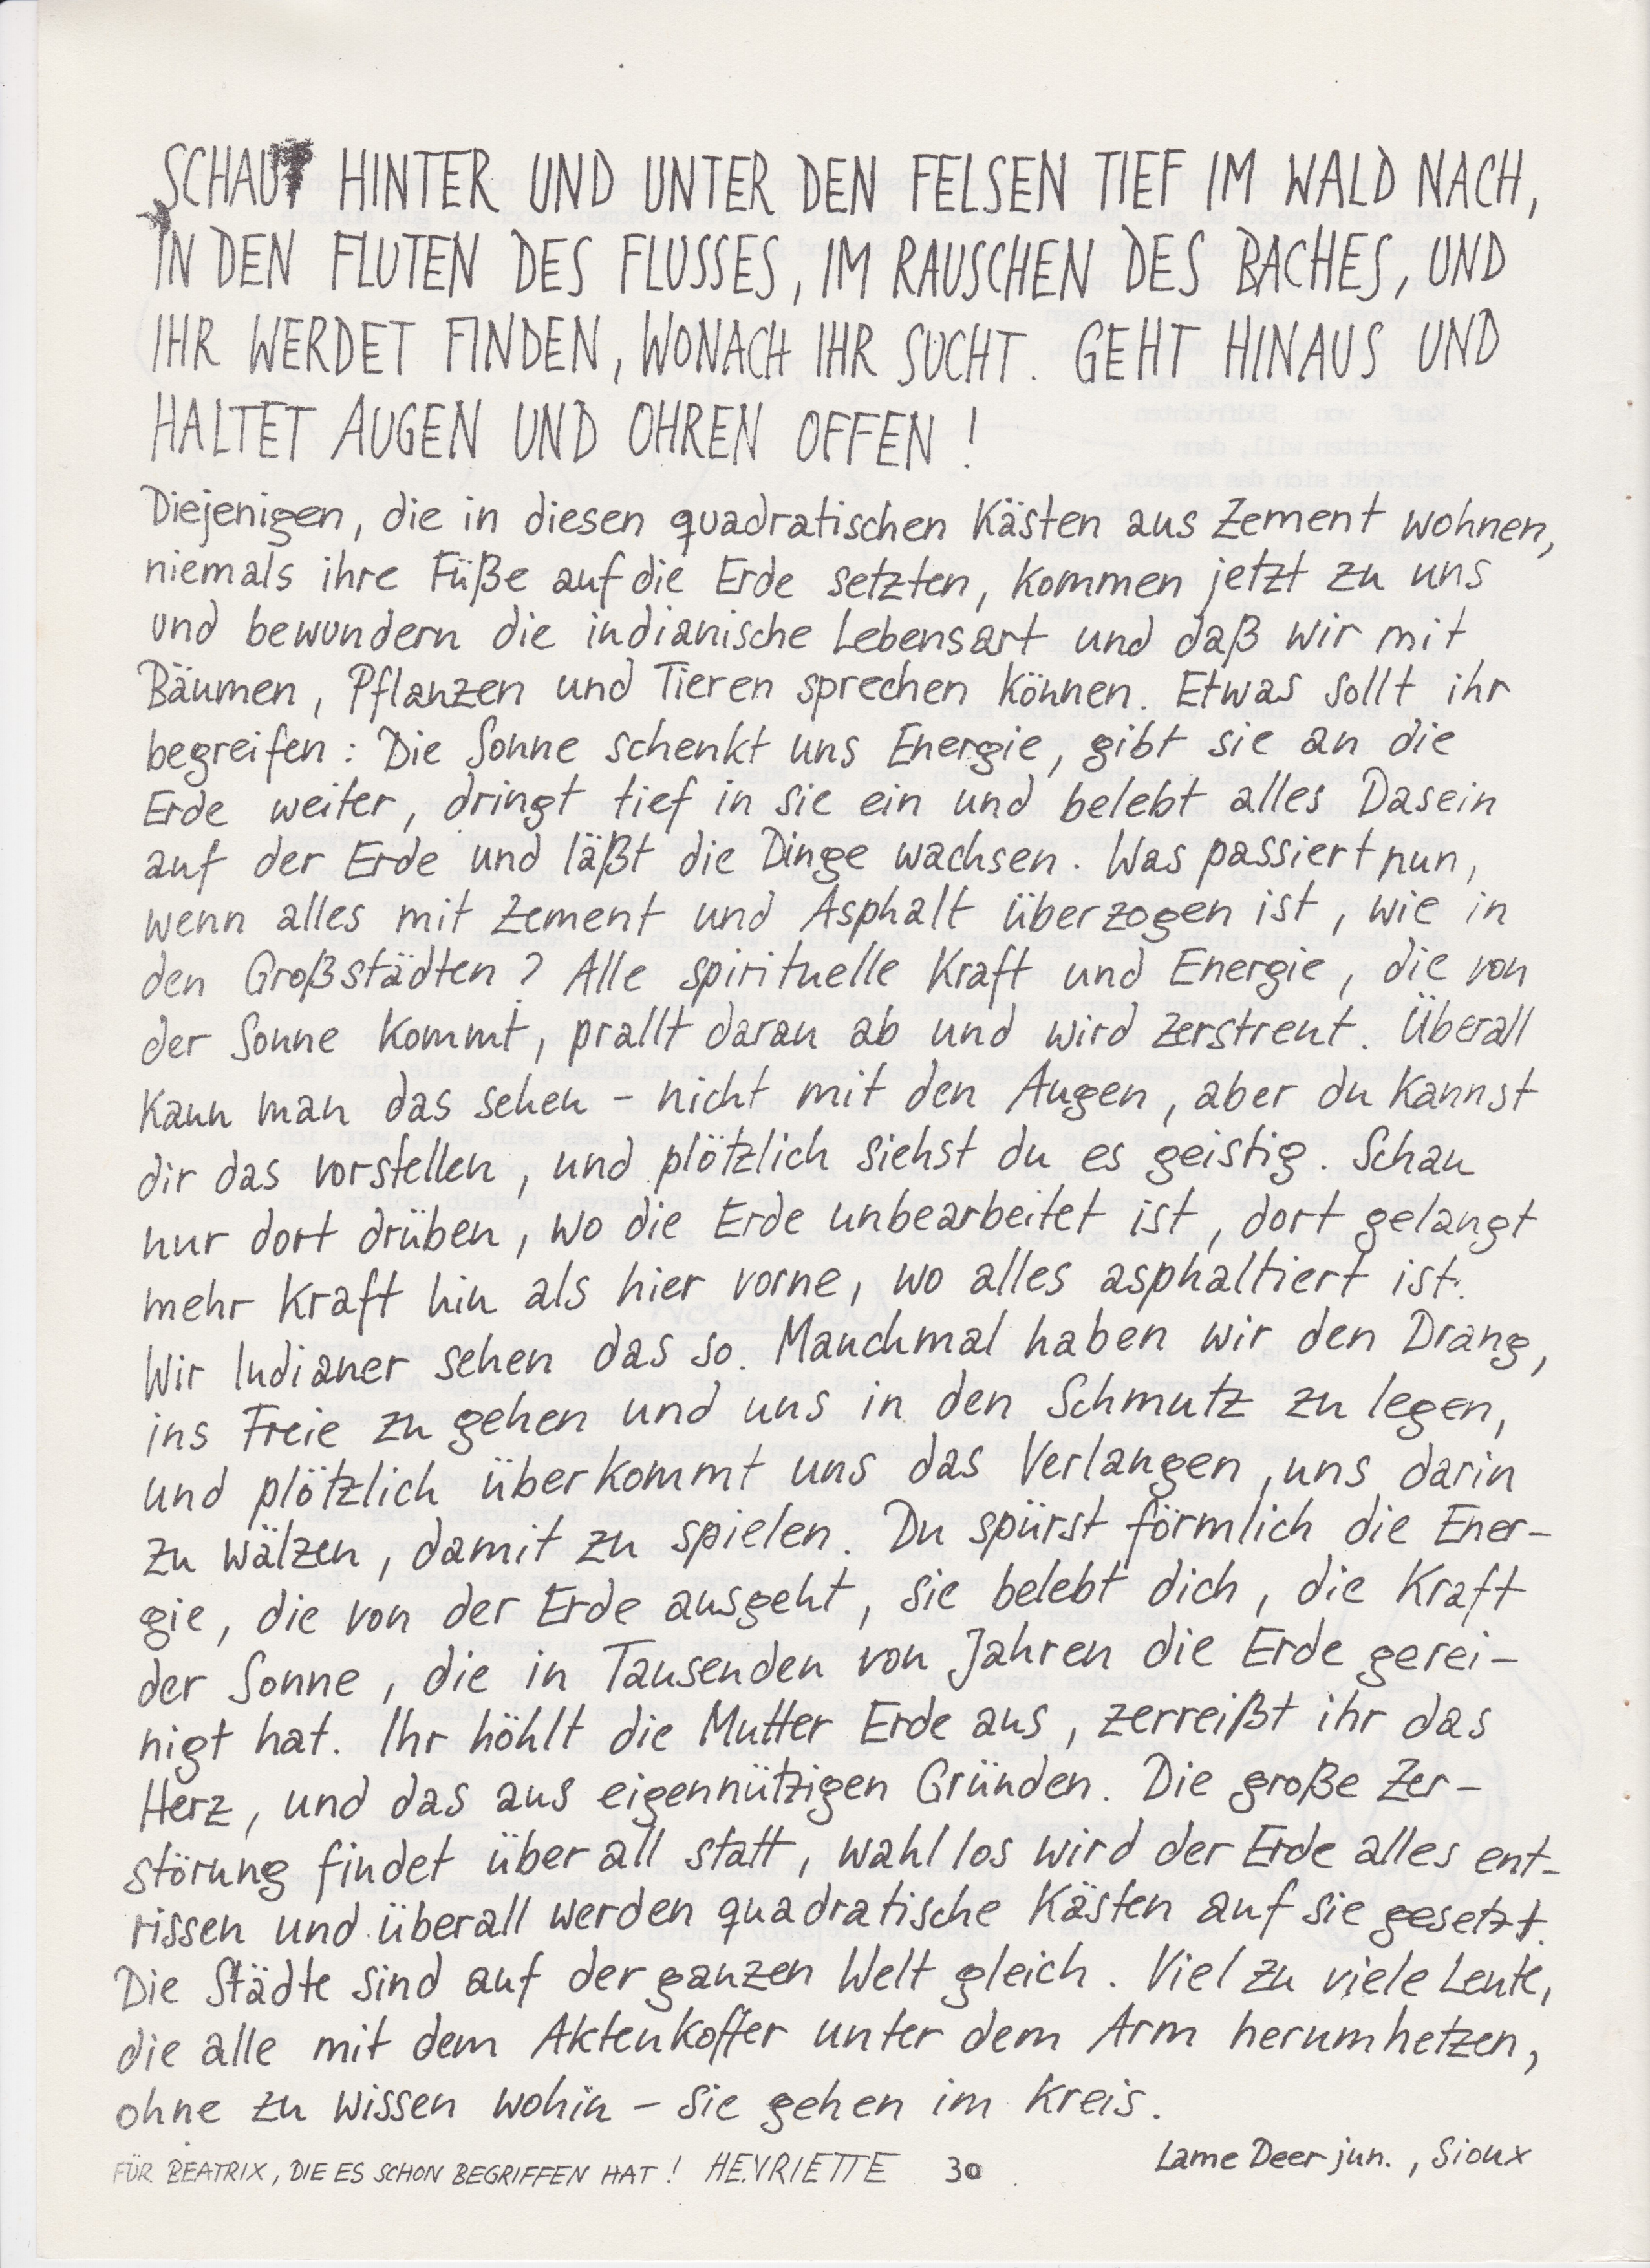 SCHAUT HINTER UND UNTER DEN FELSEN TIEF IM WALD NACH,
IN DEN FLUTEN DES FLUSSES, IM RAUSCHEN DES BACHES, UND
IHR WERDET FINDEN, WONACH IHR SUCHT. GEHT HINAUS UND
HALTET AUGEN UND OHREN OFFEN!
Diejenigen, die in diesen quadratischen Kästen aus Zement wohnen,
niemals ihre Füße auf die Erde setzten, kommen jetzt zu uns
und bewundern die indianische Lebensart und daß wir mit
Bäumen, Pflanzen und Tieren sprechen können. Etwas sollt ihr
begreifen: Die Sonne schenkt uns Energie, gibt sie an die
Erde weiter, dringt tief in sie ein und belebt alles Dasein
auf der Erde und läßt die Dinge wachsen. Was passiert nun,
wenn alles mit Zement und Asphalt überzogen ist, wie in
den Großstädten? Alle spirituelle Kraft und Energie, die von
der Sonne kommt, prallt daran ab und wird zerstreut. Überall
kann man das sehen - nicht mit den Augen, aber du kannst
dir das vorstellen, und plötzlich siehst du es geistig. Schau
nur dort drüben, wo die Erde unbearbeitet ist, dort gelangt
mehr Kraft hin als hier vorne, wo alles asphaltiert ist.
Wir Indianer sehen das so. Manchmal haben wir den Drang,
ins Freie zu gehen und uns in den Schmutz zu legen,
und plötzlich überkommt uns das Verlangen, uns darin
zu wälzen, damit zu spielen. Du spürst förmlich die Ener-
gie, die von der Erde ausgeht, sie belebt dich, die Kraft
der Sonne, die in Tausenden von Jahren die Erde gerei-
nigt hat. Ihr höhlt die Mutter Erde aus, zerreißt ihr das
Herz, und das aus eigennützigen Gründen. Die große Zer-
störung findet überall statt, wahllos wird der Erde alles ent-
rissen und überall werden quadratische Kästen auf sie gesetzt.
Die Städte sind auf der ganzen Welt gleich. Viel zu viele Leute,
die alle mit dem Aktenkoffer unter dem Arm herumhetzen,
ohne zu wissen wohin - sie gehen im Kreis.
Lame Deer jun., Sioux
FÜR BEATRIX, DIE ES SCHON BEGRIFFEN HAT! HENRIETTE 30